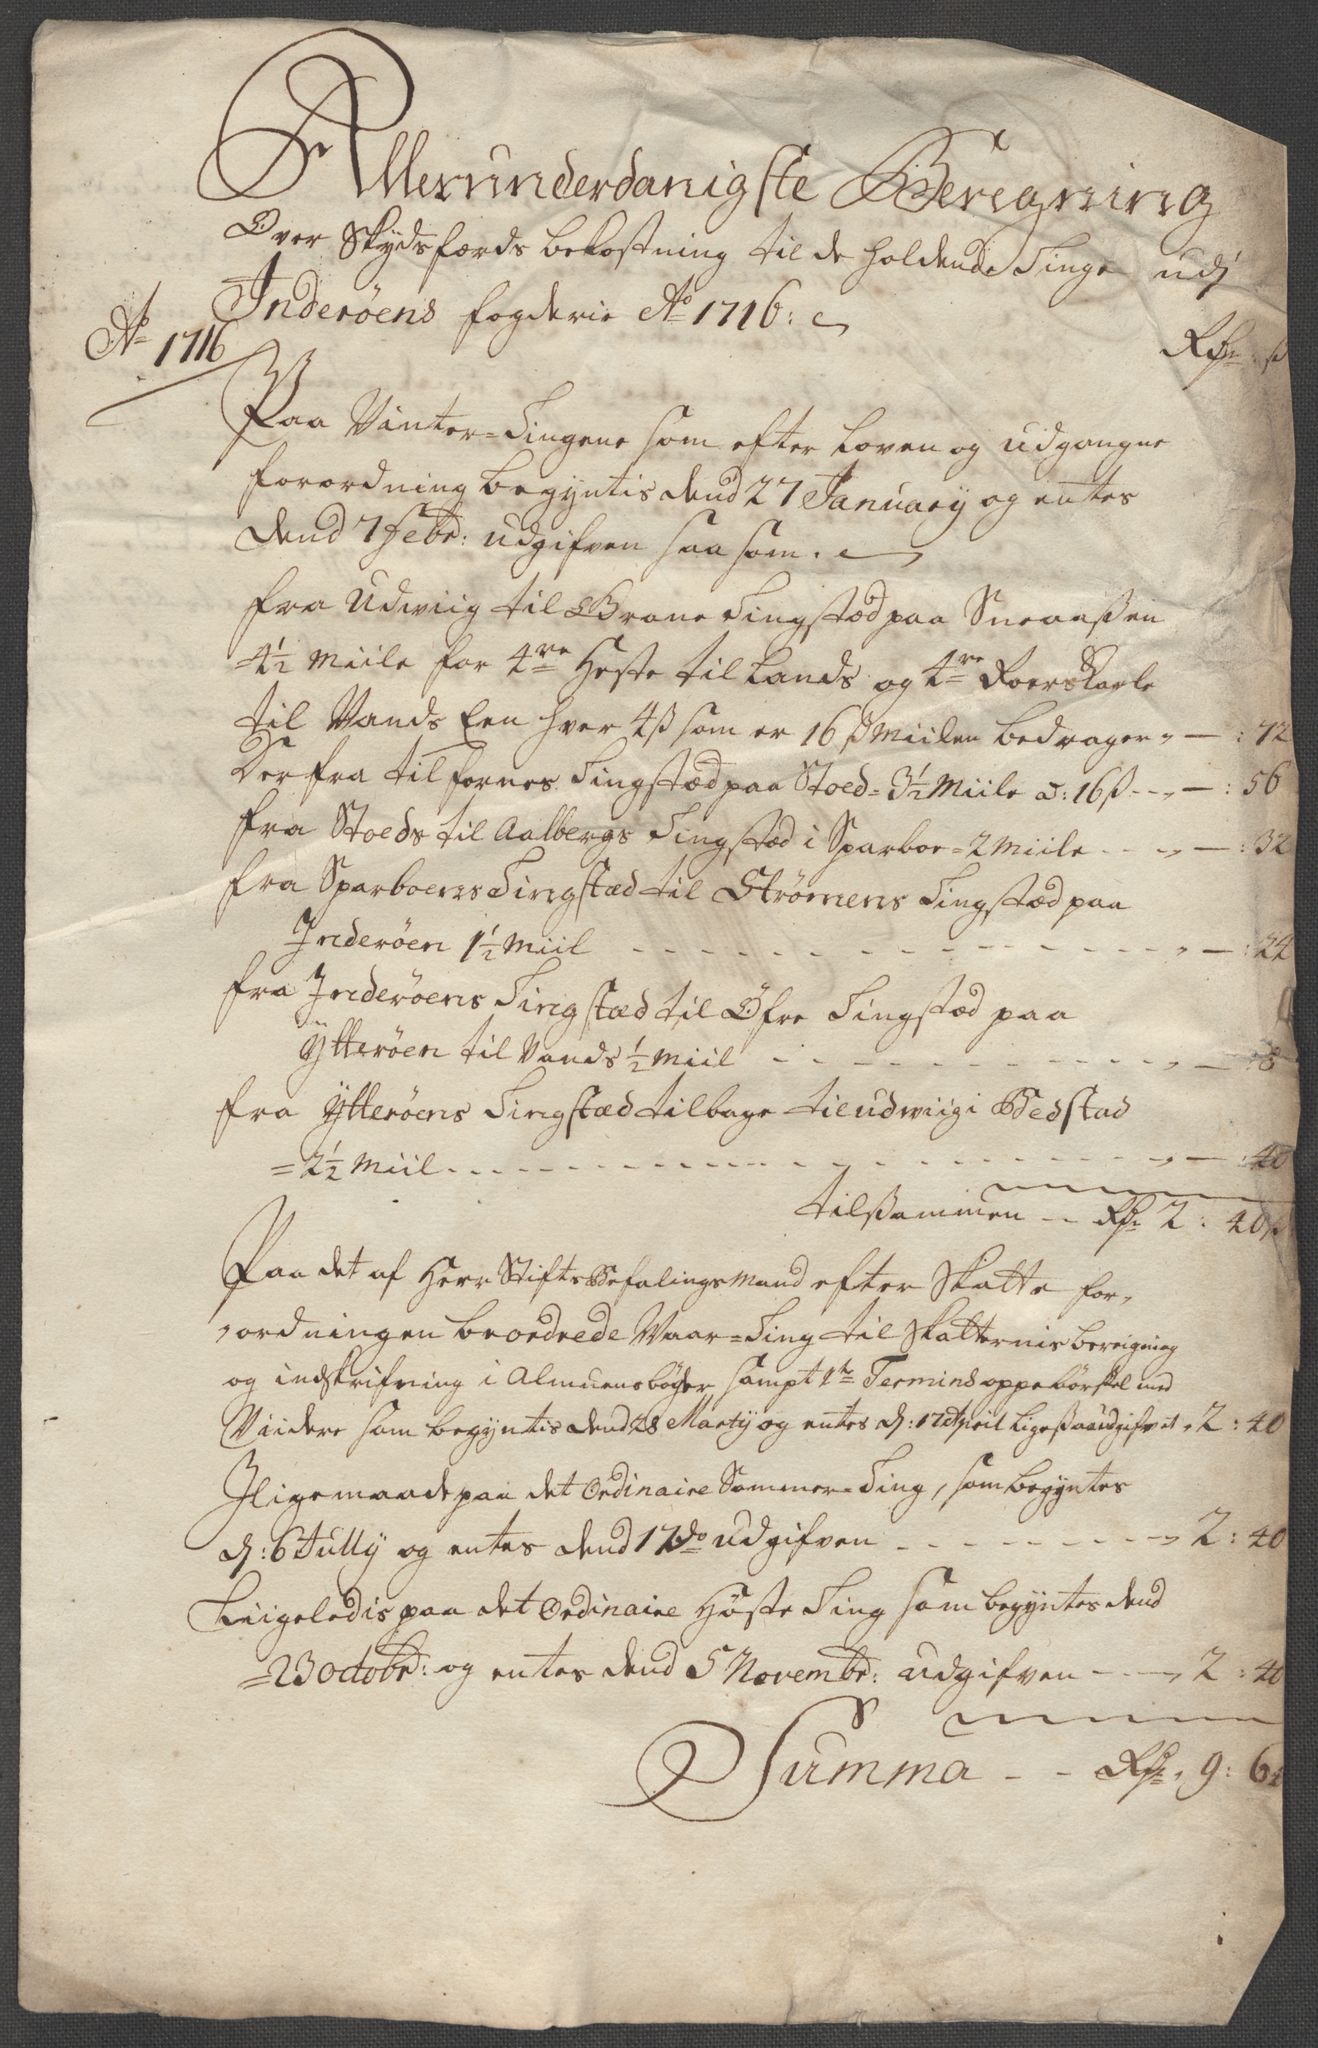 Allerunderdanigste Beregning
Over Skydsfærds bekostning til de holdende Tinge udj
Inderøens fogderie Ao 1716:
Ao 1716
Rdr ß
Paa Vinter=Tingene som efter Loven og udgangne
forordning begyntis dend 27 January og entes
dend 7 Febr: udgifven saa som.
fra Udwiig til Grane Tingstæd paa Sneaaßen
=4½ Miile for 4re Heste til Lands og 4re Roerskarle
til Vands Een hver 4ß som er 16ß Miilen bedrager „ — : 72
Derfra til fornes Tingstæd paa Stoed= 3½ Miile a: 16ß - - „ — : 56
fra Stoeds til Aalbergs Tingstæd i Sparboe =2 Miile - - - „ — : 32
fra Sparboens Tingstæd til Strømens Tingstæd paa
Inderøen 1½ Miil - - - - - - - „ — : 24
fra Inderøens Tingstæd til Öfre Tingstæd paa
Ÿtterøen til Vands ½ Miil - - - - - - „ — : 8
fra Ÿtterøens Tingstæd tilbage til udwiig i Bedstad
=2½ Miil - - - - - - - - - „ — : 40
tilßammen - - Rdr 2 : 40ß
Paa det af Herr Stifts Befalings Mand efter Skatte for„
„ordningen beordrede Vaar=Ting til Skatternis bereigning
og indskrifning i Almuens bøger, sampt 1te Termins oppebørsel med
Viidere som begyntis dend 28 Martÿ og entes d: 17 April Ligeßaa udgifvet „ 2 : 40
Jligemaade paa det Ordinaire Sommer=Ting, som begyntes
d: 6 Jully og entes dend 17 do udgifven - - - - - - „ 2 : 40
Liigeledis paa det Ordinaire Høste Ting som begyntes dend
=23 octobr: og entes dend 5 Novembr: udgifven - - - „ 2 : 40
Summa - - Rdr „ 9 : 64